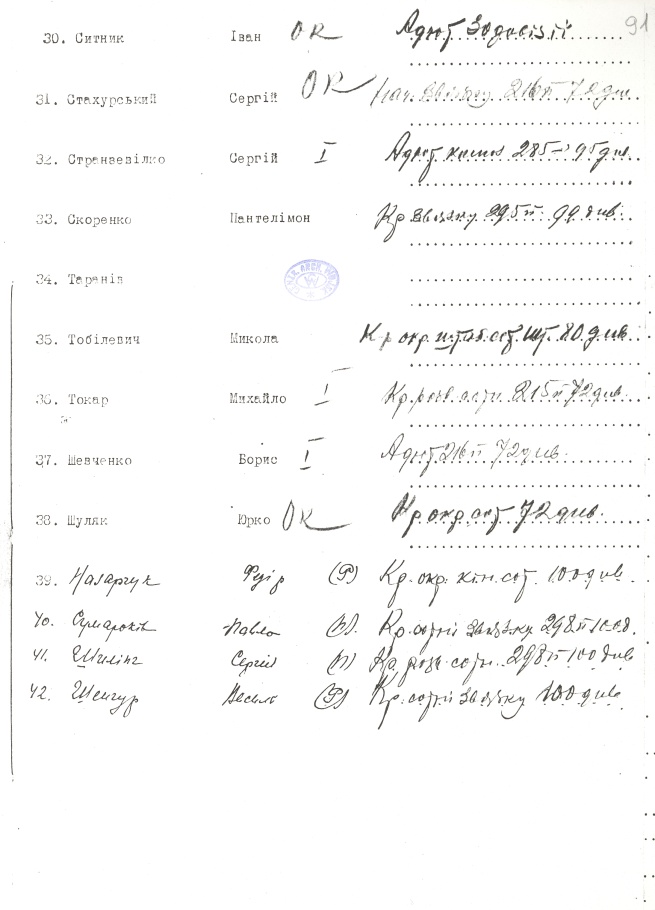 91
30. Ситник Іван OK Адют
31. Стахурський Сергій OK Нач. Звязку 216 п 72 див.
32. Странзевілко Сергій I Адют 285 95 див.
33. Скоренко Пантелімон Кр Звязку 295 п. 99 див.
34. Таранів
35. Тобілевич Микола Кр окр. штаб. сот. шт. 80 див
36. Токар Михайло I Кр. розв. сотн. 215 п 72 див.
37. Шевченко Борис I Адют 216 п 72 див.
38. Шуляк Юрко OK Кр окр сот 72 див.
39. Назарчук Федір (Р) Кр. окр. кін. сот. 100 див.
40. Сумароків Павло Кр. сотні Звязку 298 п 100 д.
41. Шилінг Сергій (П) Кр. розв. сотн. 298 п 100 див
42. Шенгур Василь (Р) Кр. сотні Звязку 100 див